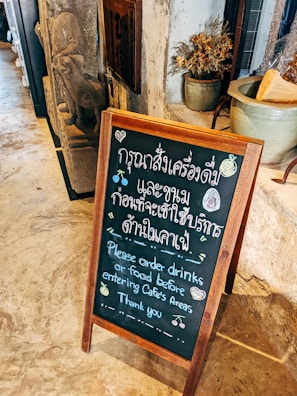 กรุณาสั่งเครื่องดื่ม
และขนม
ก่อนที่จะเข้าใช้บริการ
ด้านในคาเฟ่
Please order drinks
or food before
entering Cafe's Areas
Thank you